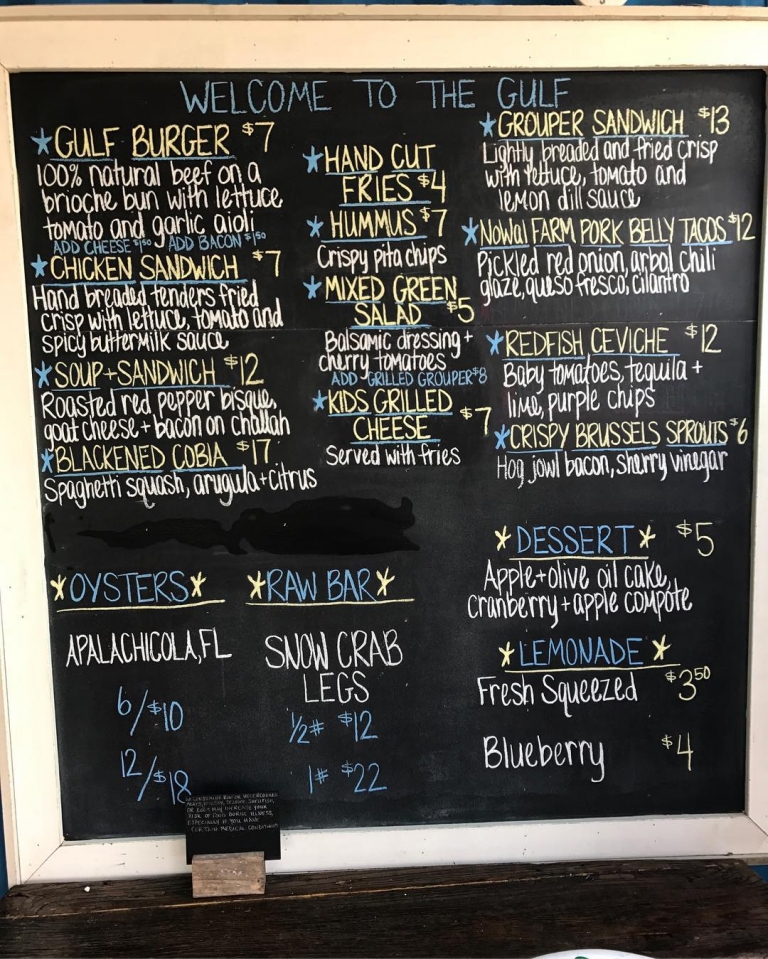 WELCOME TO THE GULF
GULF BURGER $7
100% natural beef on a
brioche bun with lettuce
tomato and garlic aioli
ADD CHEESE $1.50 ADD BACON $1.50
CHICKEN SANDWICH $7
Hand breaded tenders fried
crisp with lettuce, tomato and
spicy buttermilk sauce
SOUP+SANDWICH $12
Roasted red pepper bisque,
goat cheese + bacon on challah
BLACKENED COBIA $17
Spaghetti squash, arugula + citrus
HAND CUT
FRIES $4
HUMMUS $7
Crispy pita chips
MIXED GREEN
SALAD $5
Balsamic dressing +
cherry tomatoes
ADD - GRILLED GROUPER $8
KIDS GRILLED
CHEESE $7
Served with fries
GROUPER SANDWICH $13
Lightly breaded and fried crisp
with lettuce, tomato and
lemon dill sauce
NOWAl FARM PORK BELLY TACOS $12
Pickled red onion, arbol chili
glaze, queso fresco, cilantro
REDFISH CEVICHE $12
Baby tomatoes, tequila +
lime, purple chips
CRISPY BRUSSELS SPROUTS $6
Hog jowl bacon, sherry vinegar
OYSTERS
APALACHICOLA, FL
6/$10
12/$18
RAW BAR
SNOW CRAB
LEGS
1/2# $12
1# $22
DESSERT $5
Apple + olive oil cake,
cranberry + apple compote
LEMONADE
Fresh Squeezed $3.50
Blueberry $4
RISK OF FOOD BORNE ILLNESS,
ESPECIALLY IF YOU HAVE
CERTAIN MEDICAL CONDITIONS